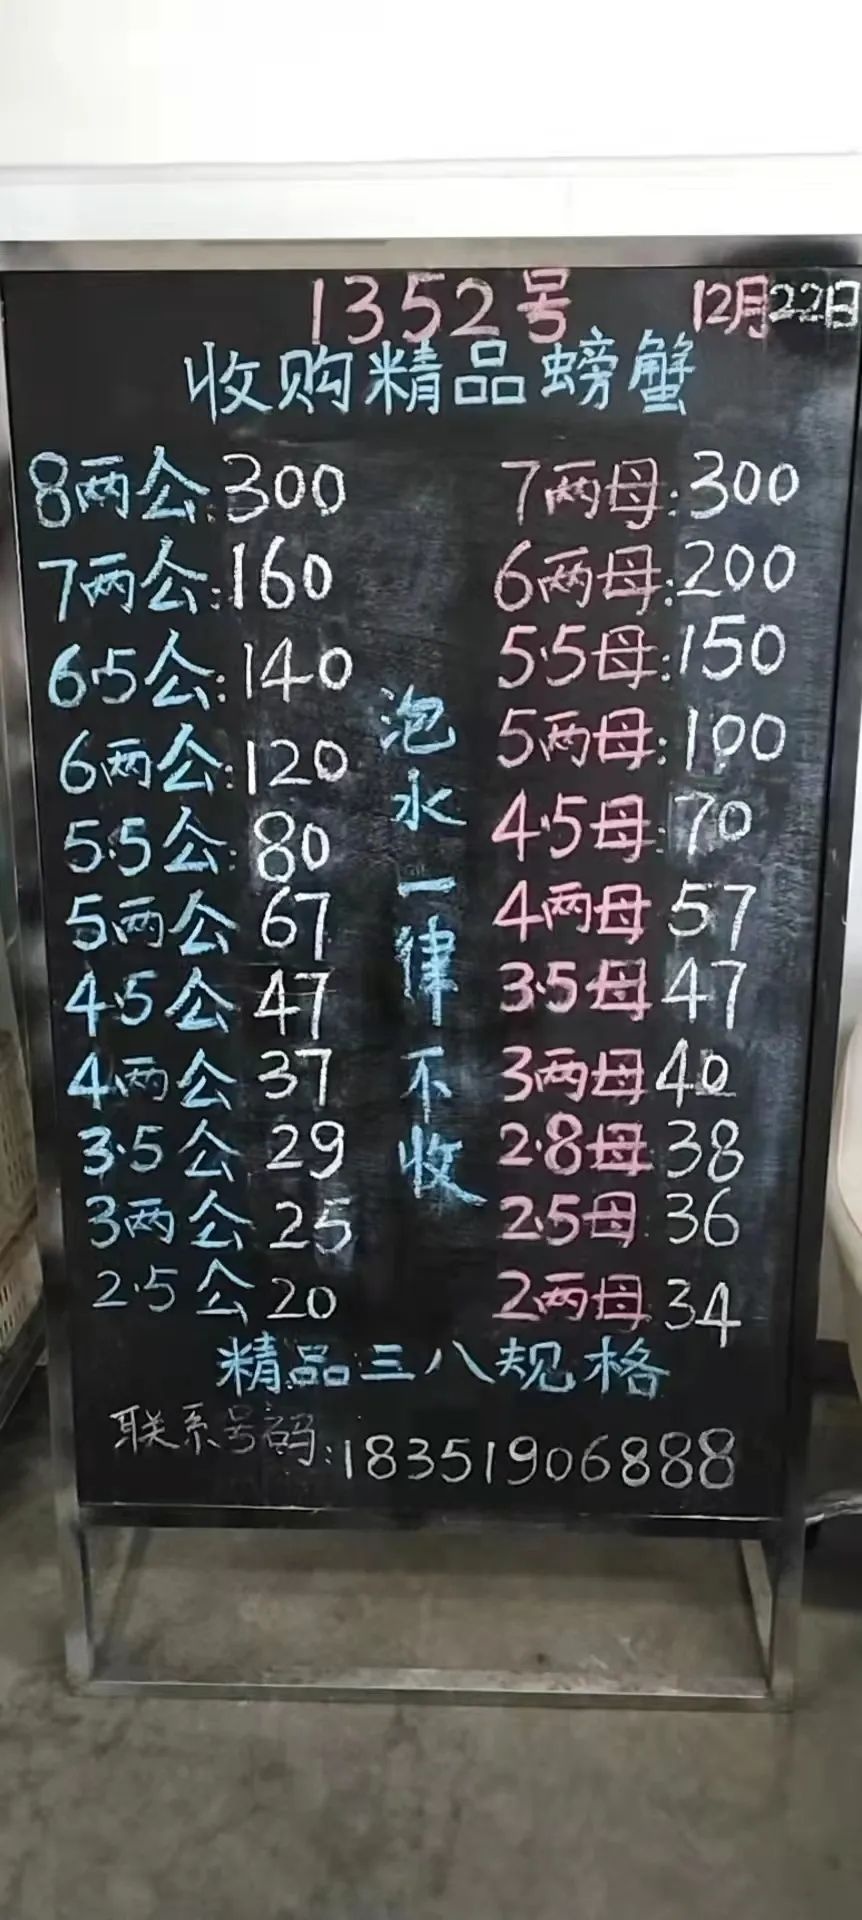 1352号 12月22日
收购精品螃蟹
8两公:300
7两公:160
6.5公:140
6两公:120
5.5公:80
5两公67
4.5公47
4两公37
3.5公29
3两公25
2.5公20
泡水一律不收
7两母:300
6两母:200
5.5母:150
5两母:100
4.5母:70
4两母57
3.5母47
3两母40
2.8母38
2.5母36
2两母34
精品三八规格
联系号码:18351906888